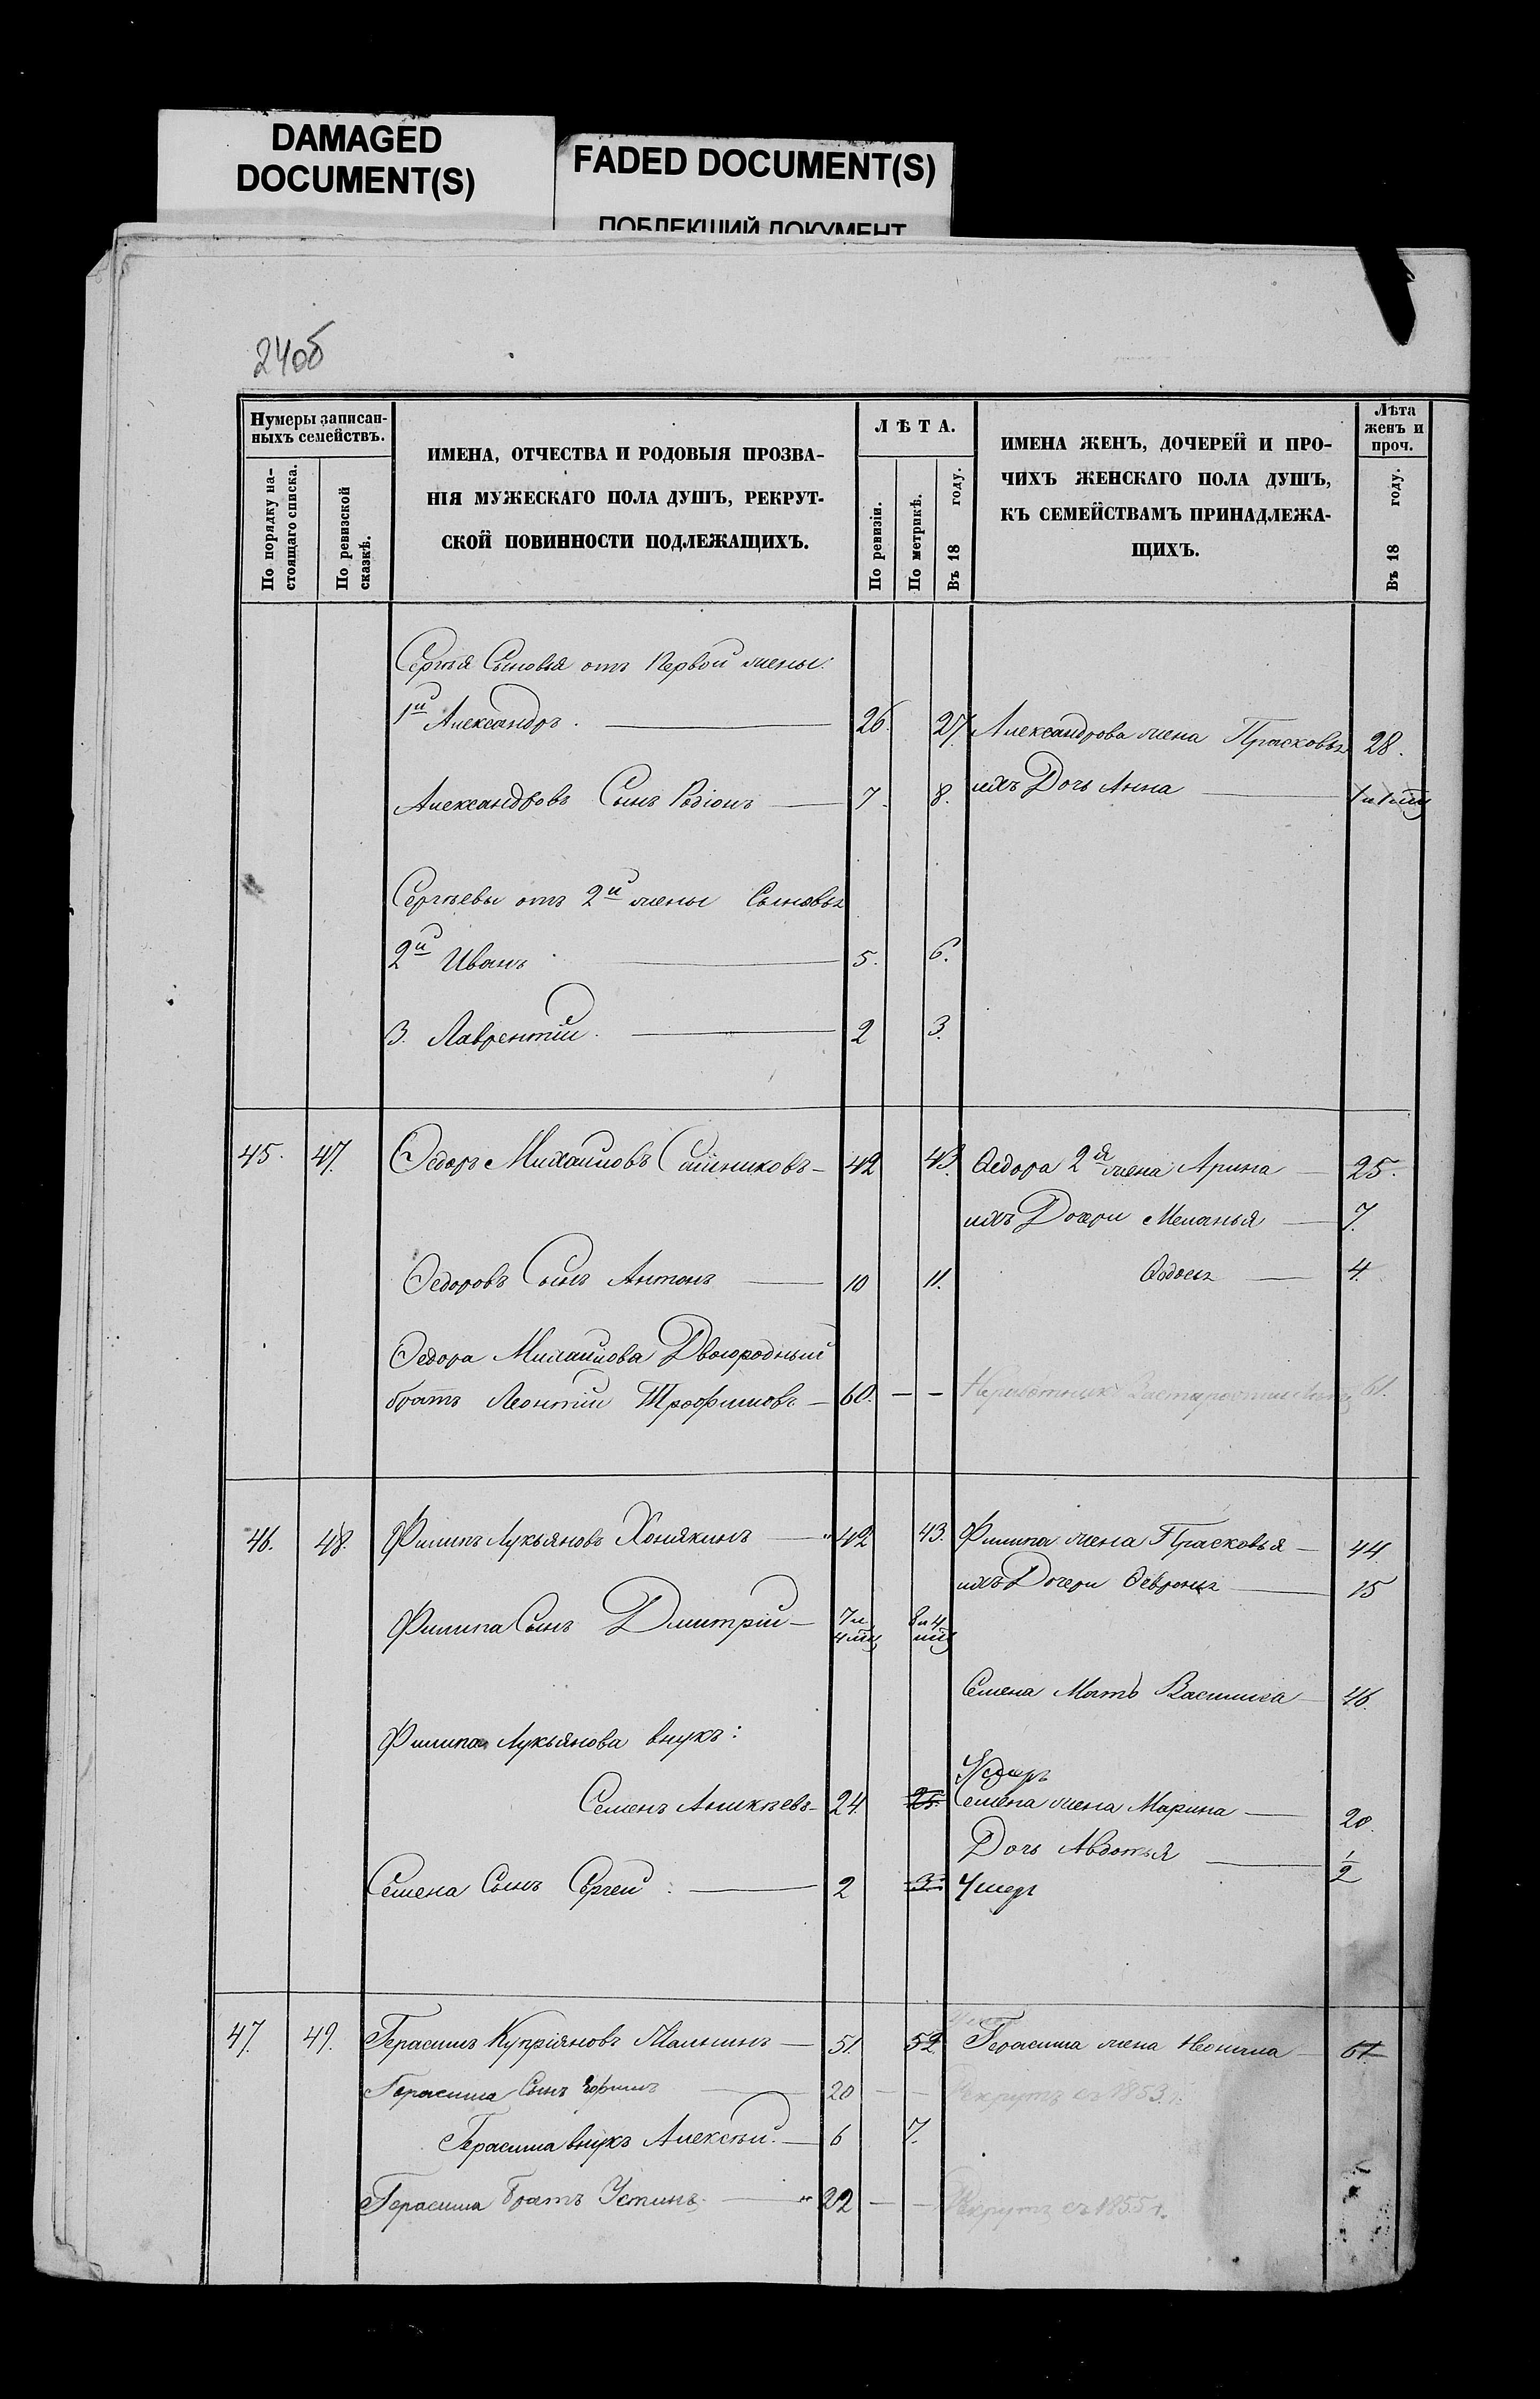 DAMAGED
DOCUMENT(S)
FADED DOCUMENT(S)
ПОБЛЕКШИЙ ДОКУМЕНТ
24об
Нумеры записан-
ныхъ семействъ.
По порядку на-
стоящаго списка.
По ревизской
сказкѣ.
ИМЕНА, ОТЧЕСТВА И РОДОВЫЯ ПРОЗВА-
НІЯ МУЖЕСКАГО ПОЛА ДУШЪ, РЕКРУТ-
СКОЙ ПОВИННОСТИ ПОДЛЕЖАЩИХЪ.
ЛѢТА.
По ревизіи.
По метрикѣ.
Въ 18 году.
ИМЕНА ЖЕНЪ, ДОЧЕРЕЙ И ПРО-
ЧИХЪ ЖЕНСКАГО ПОЛА ДУШЪ,
КЪ СЕМЕЙСТВАМЪ ПРИНАДЛЕЖА-
ЩИХЪ.
Лѣта
женъ и
проч.
Въ 18 году.
Сергѣя Сыновья отъ Первой жены:
1й Александръ. 26. 27. Александрова жена Прасковья 28.
Александровъ Сынъ Родіонъ 7. 8. ихъ Дочь Анна
Сергѣевы отъ 2й жены Сыновья
2й Иванъ 5. 6.
3. Лаврентій. 2 3.
45. 47. Ѳедоръ Михайловъ 42 43. Ѳедора 2я жена Арина 25.
ихъ Дочери Меланья 7.
Ѳедоровъ Сынъ Антонъ 10 11. Ѳедосья 4.
Ѳедора Михайлова Двоюродный
братъ Леонтій Трофимовъ 60. — — 61.
46. 48. Филипъ Лукьяновъ Хонякинъ 42 43. Филипа жена Прасковья 44.
ихъ Дочери Ѳевронья 15
Филипа Сынъ Дмитрій 7 и 4 мѣс 8 и 4 мѣс
Семена Мать Василиса 46.
Филипа Лукьянова внукъ:
Умеръ
Семенъ Аникѣевъ 24. 25. Семена жена Марина 20.
Дочь Авдотья 1/2
Семена Сынъ Сергей 2 3. Умеръ
47. 49. Герасимъ Купріяновъ Малькинъ 51. 52 Герасима жена Неонила 61.
Герасима Сынъ Ефимъ 20 — — Рекрутъ съ 1853 г.
Герасима внукъ Алексѣй. 6 7.
Герасима братъ Устинъ 22 — — Рекрутъ съ 1855 г.